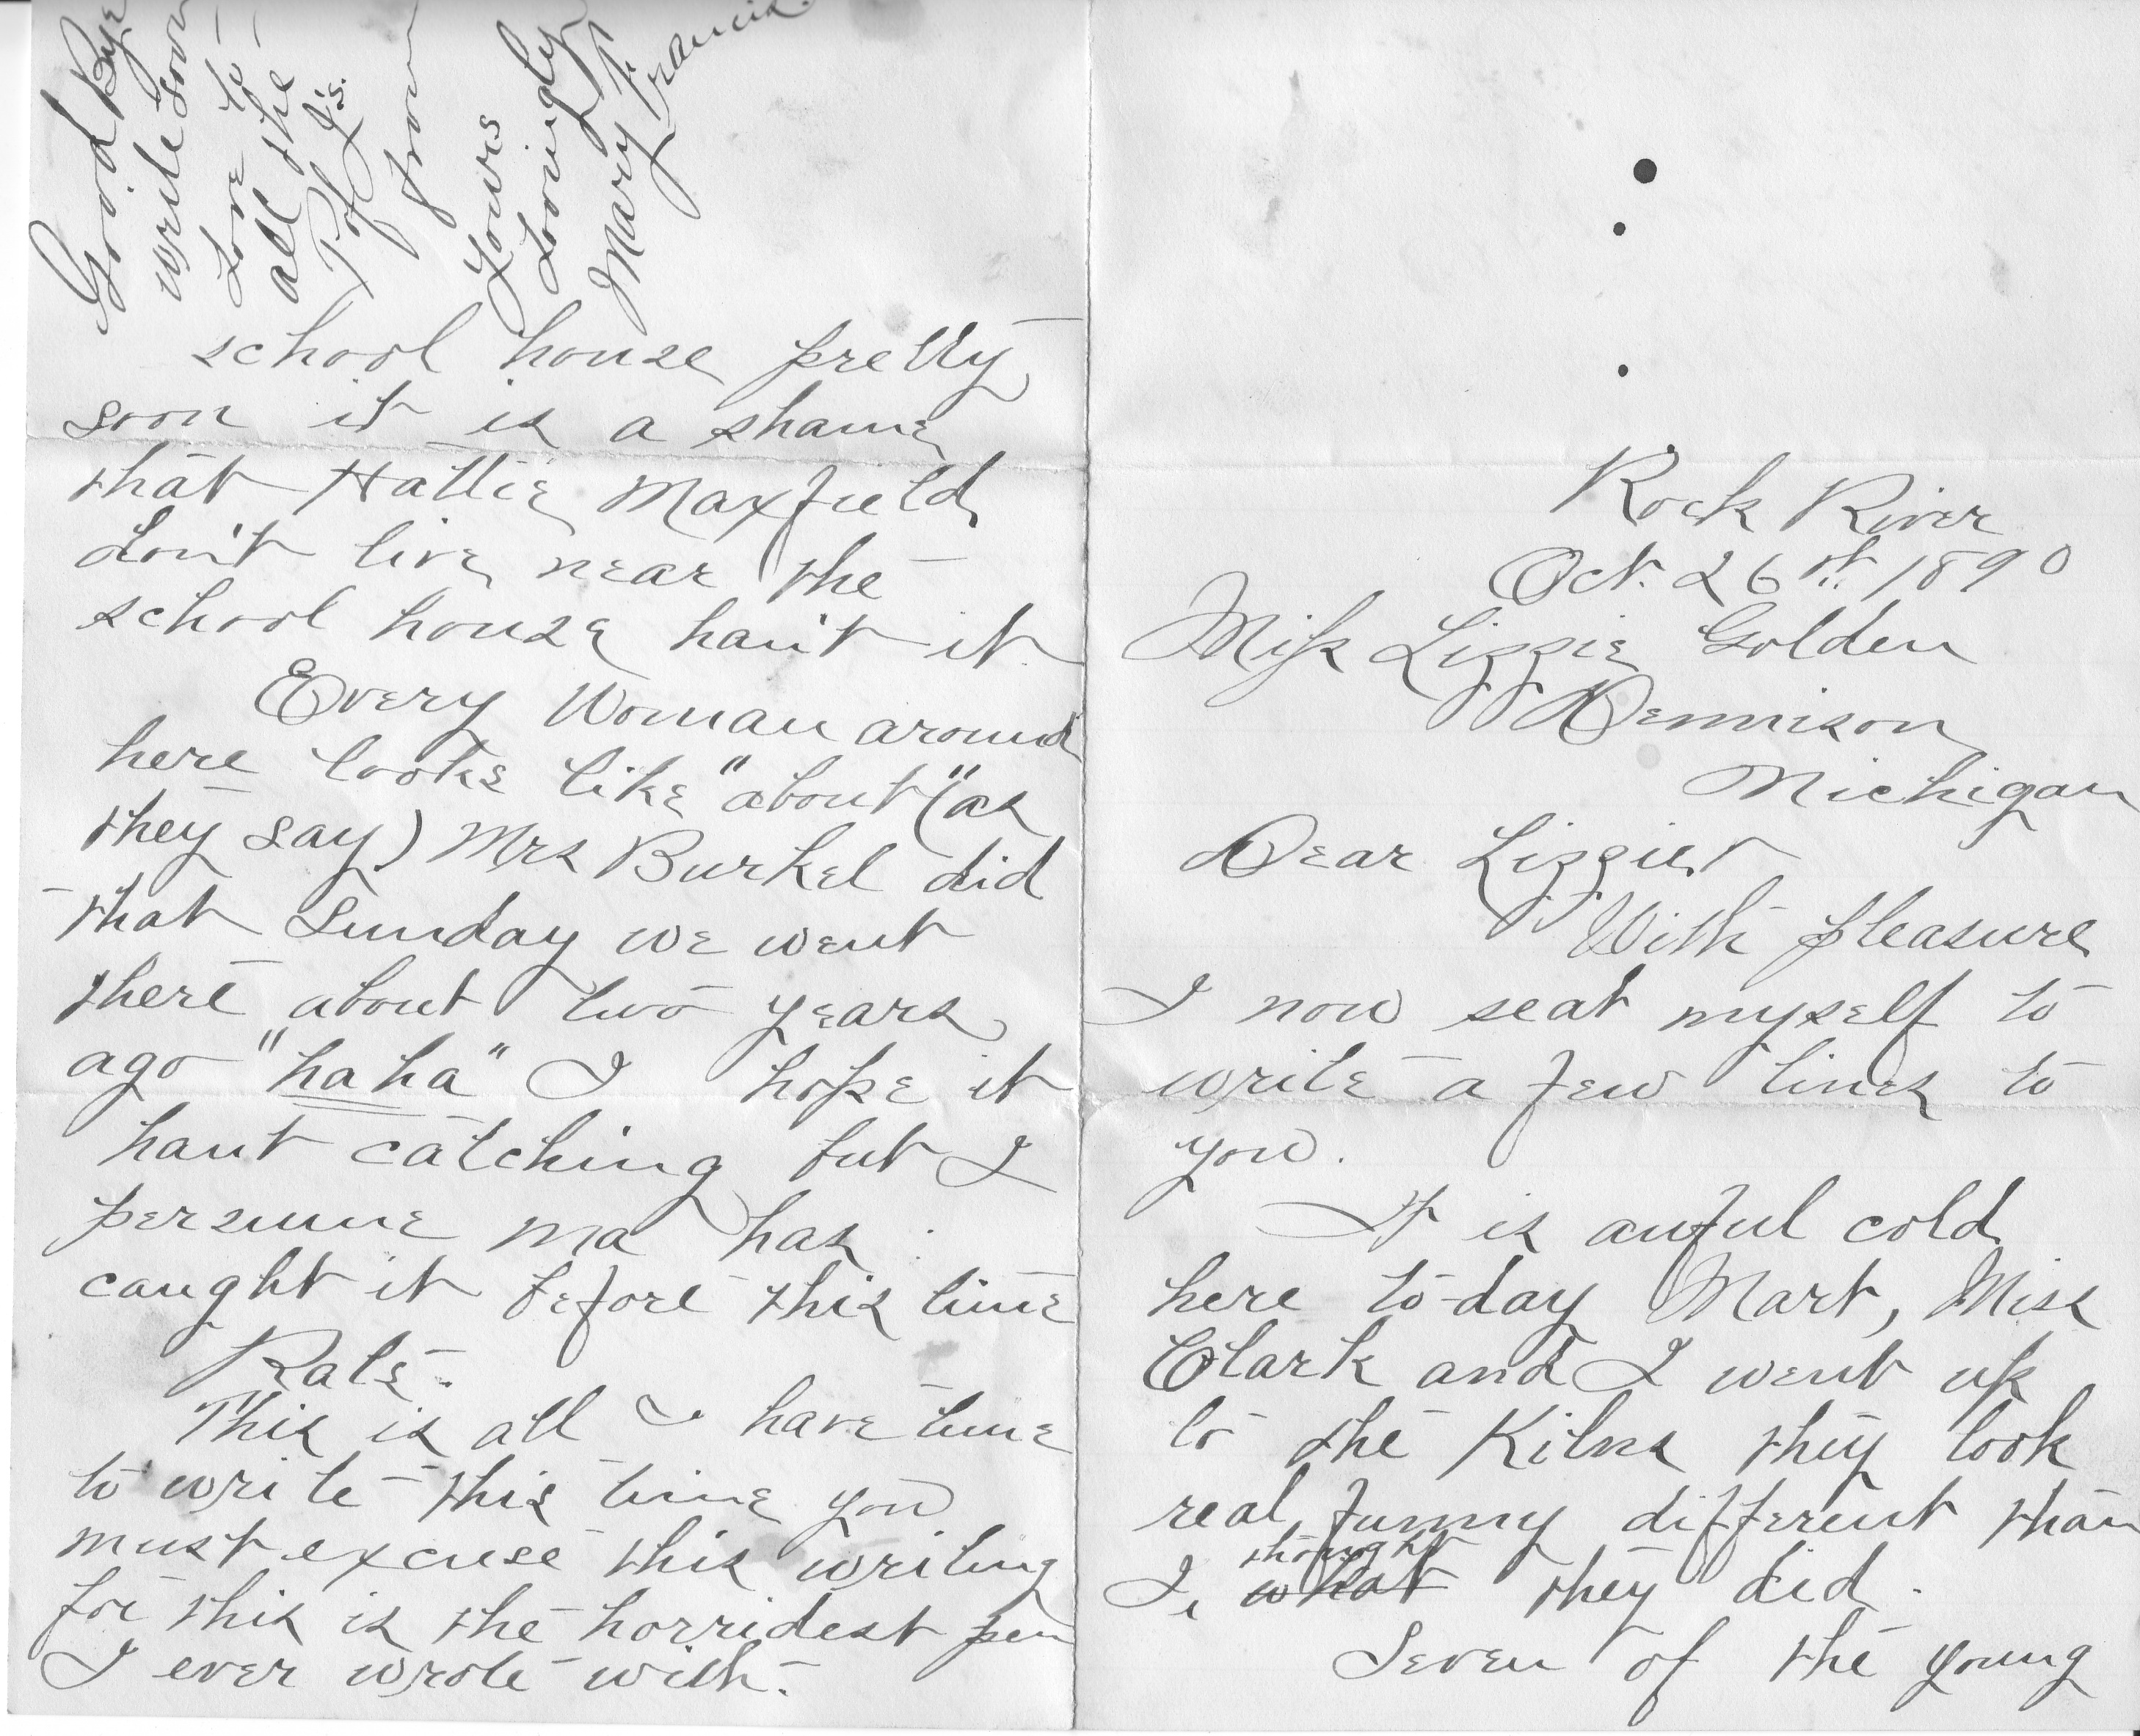 Rock River
Oct. 26th 1890
Miss Lizzie Golden
Dennison
Michigan
Dear Lizzie
With pleasure
I now seat myself to
write a few lines to
you.
It is awful cold
here to-day Mart, Miss
Clark and I went up
to the Kilns they look
real funny different than
I, thought what they did.
Seven of the young
school house pretty
soon it is a shame
that Hattie Maxfield
don't live near the
school house hain't it
Every Woman around
here looks like "about" (as
they say) Mrs Burkel did
that Sunday we went
there about two years
ago "ha ha" I hope it
haut catching but I
persume ma has
caught it before this time
Rats.
This is all I have time
to write this time you
must excuse this writing
for this is the horridest pen
I ever wrote with.
Good Bye
write soon
Love to
all the
from
Yours
Lovingly
Mary Francis.